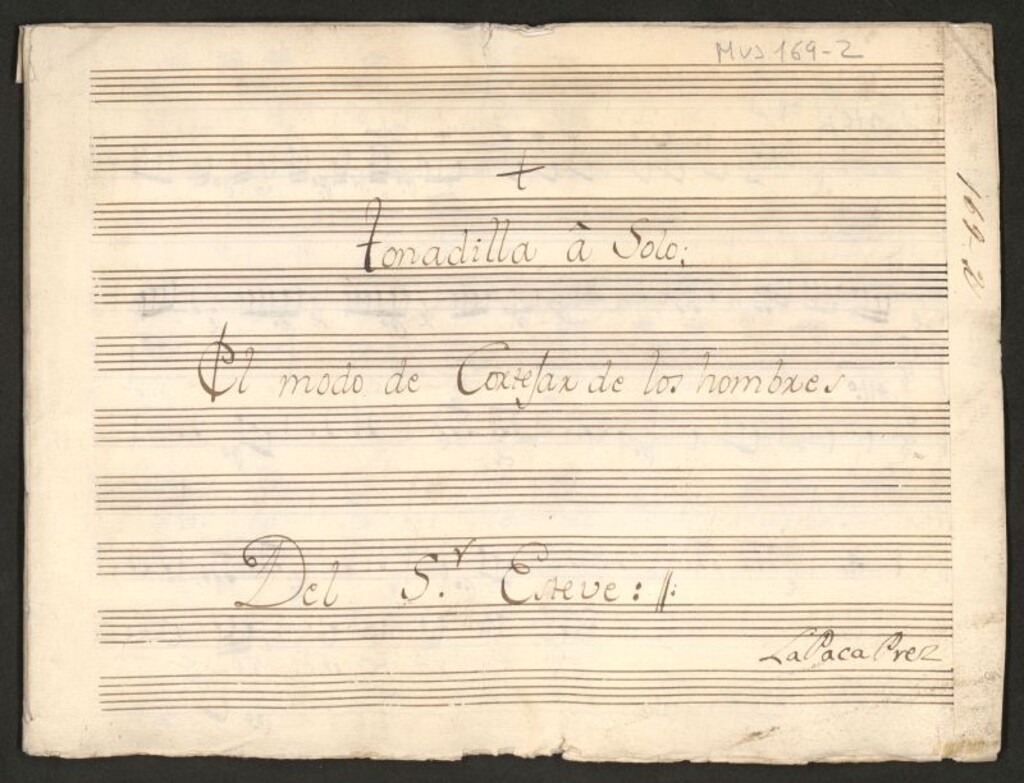 MUS 169-2
+
tonadilla â Solo:
El modo de Cortejar de los hombres
Del S.r Esteve: ||:
La Paca Prez
169-2